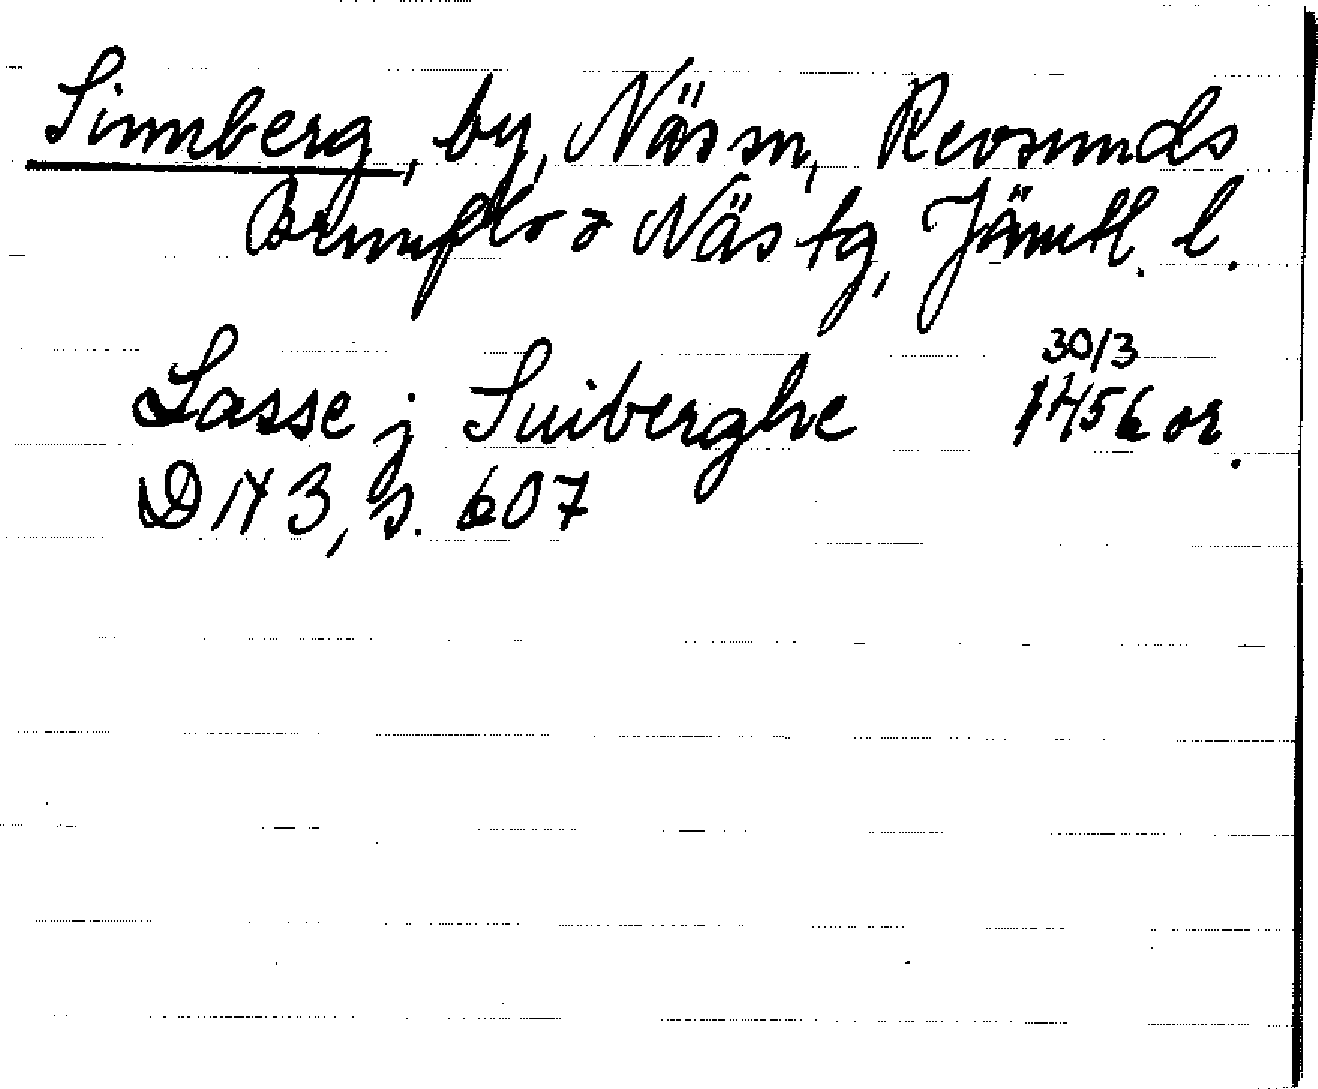 Sinnberg, by, Näs sn, Revsunds
Brunflo o Näs tg, Jämtl. l.
Lasse j Suiberghe 30/3 1456 or.
DN 3, s. 607